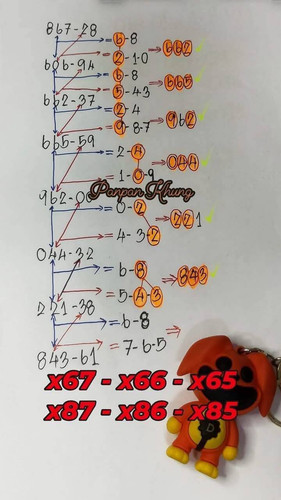 867-28
= 6-8 → 662 ✓
= 2-1-0
606-94
= 6-8 → 665 ✓
= 5-4-3
662-37
= 2-4 → 962 ✓
= 9-8-7
665-59
= 2-4 → 044 ✓
= 1-0-9
Panpan Hhung
962-00
= 0-2 → 221 ✓
= 4-3-2
044-32
= 6-8 → 843 ✓
= 5-4-3
221-38
= 6-8 →
= 7-6-5
843-61
x67 - x66 - x65
x87 - x86 - x85
D